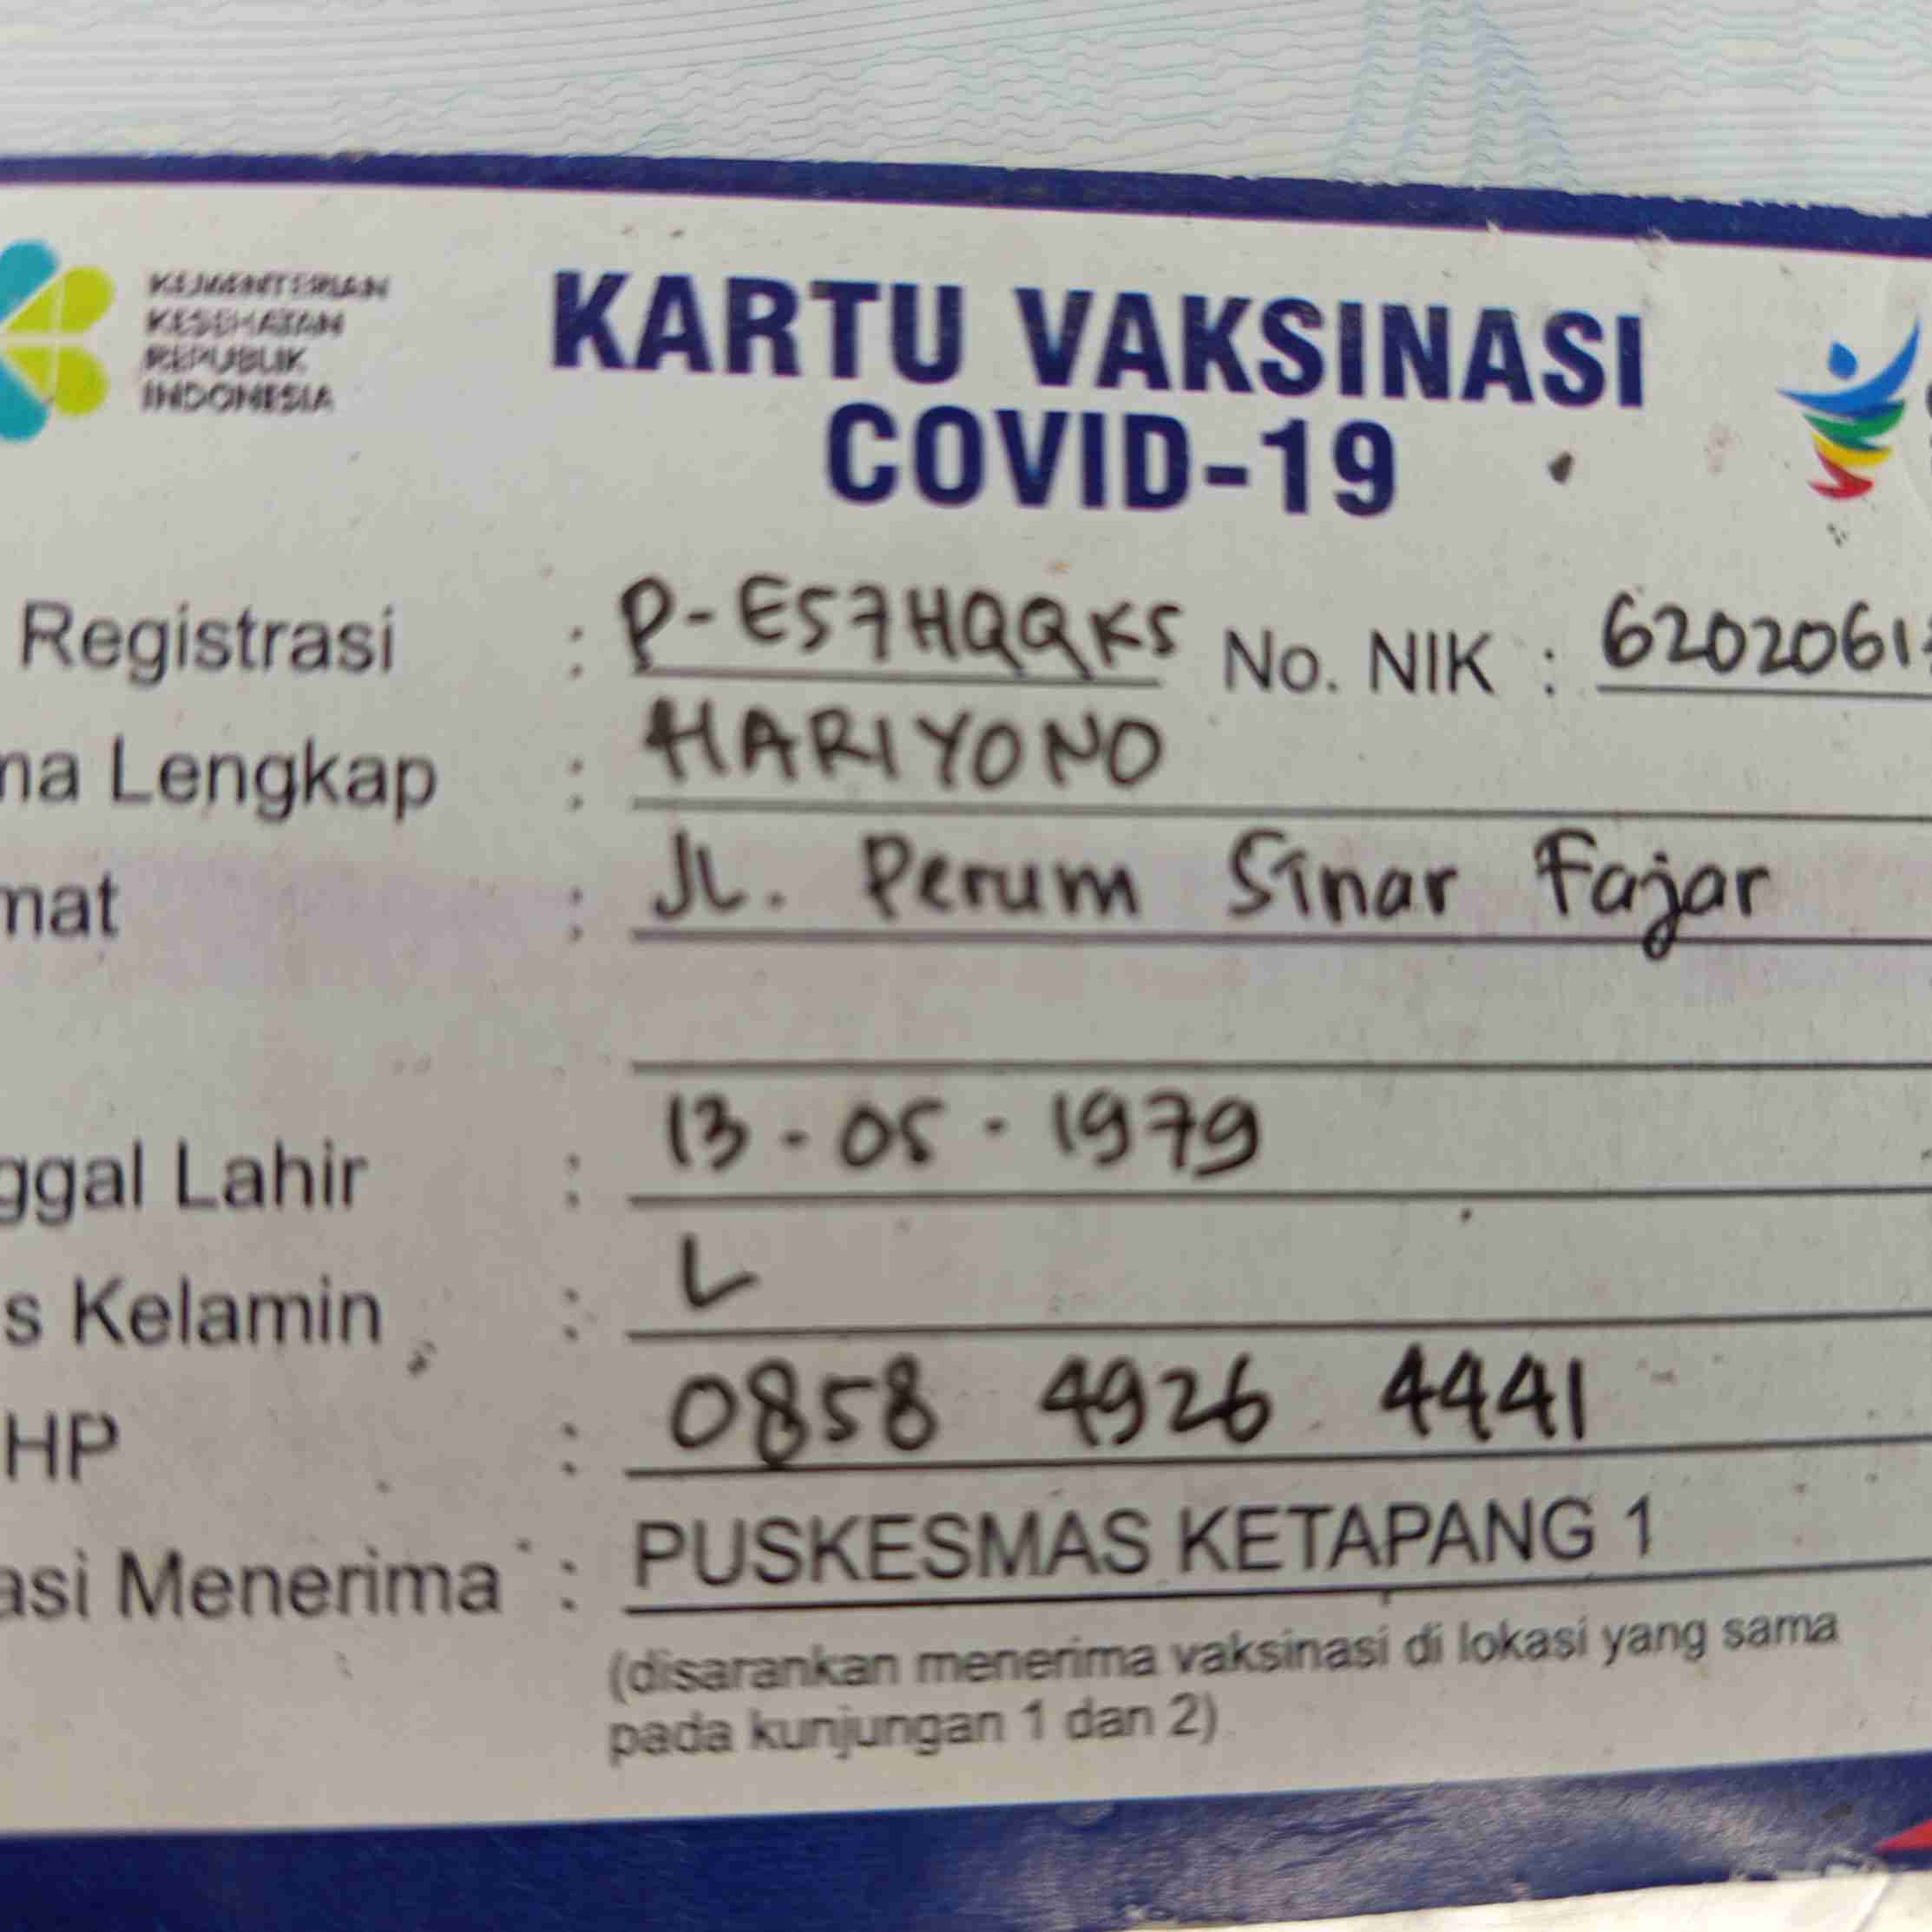 KEMENTERIAN
KESEHATAN
REPUBLIK
INDONESIA
KARTU VAKSINASI
COVID-19
Registrasi : P-E57HQQKS No. NIK : 6202061
ma Lengkap : HARIYONO
mat : JL. Perum Sinar Fajar
ggal Lahir : 13 - 05 - 1979
s Kelamin : L
HP : 0858 4926 4441
asi Menerima : PUSKESMAS KETAPANG 1
(disarankan menerima vaksinasi di lokasi yang sama
pada kunjungan 1 dan 2)